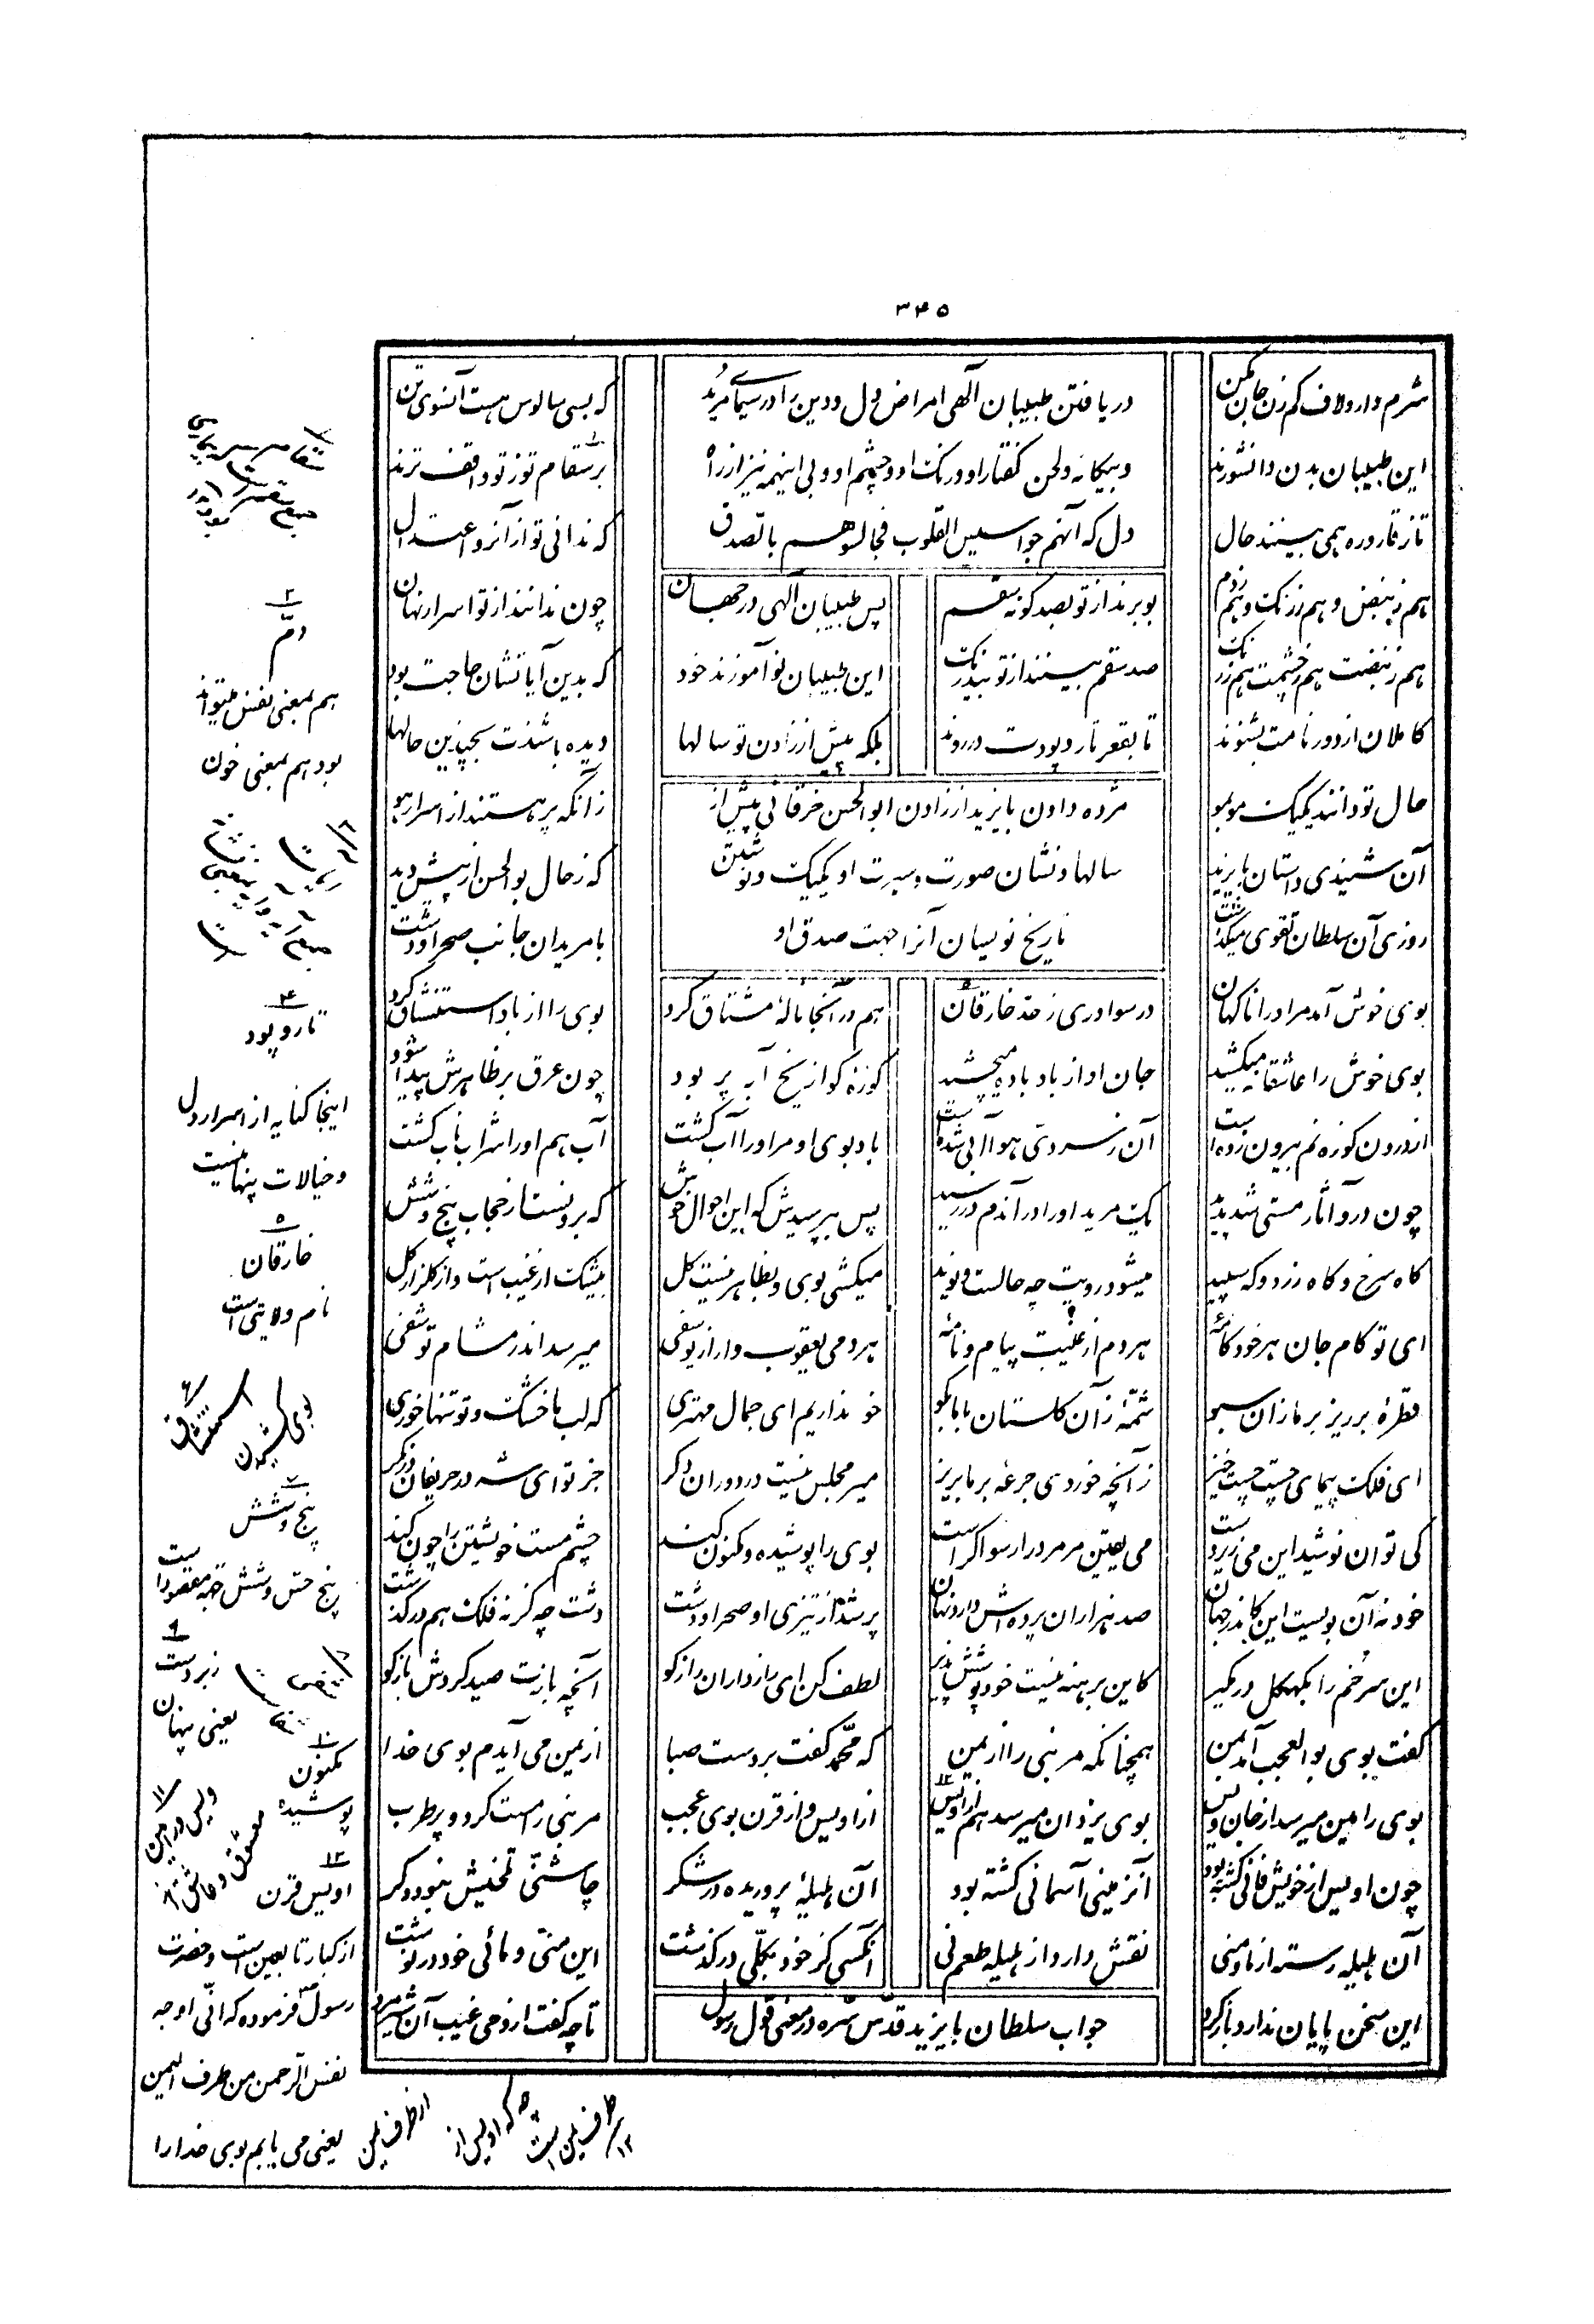 ۳۴۵
شرم دار و لاف کم زن جان مکن
که بسی جاسوس هست آنسوی تن
دریافتن طبیبان آلهی امراض دل و دین را در سیمای مرید
و بیگانه و لحن گفتار او و رنگ او و چشم او و بی اینهمه نیز از راه
دل که انهم جواسیس القلوب فجالسوهم بالصدق
این طبیبان بدن دانشورند
بر سقام تو ز تو واقف ترند
تا ز قاروره همی بینند حال
که ندانی تو از آن رو اعتدال
هم ز نبض و هم ز رنگ و هم ز دم
بو برند از تو بصد گونه سقم
پس طبیبان آلهی در جهان
چون ندانند از تو اسرار نهان
هم ز نبضت هم ز چشمت هم ز رنگ
صد سقم بینند از تو بیدرنگ
این طبیبان نو آموزند خود
که بدین آیاتشان حاجت بود
کاملان از دور نامت بشنوند
تا بقعر تار و پودت در روند
بلکه پیش از زادن تو سالها
دیده باشندت بچندین حالها
مژده دادن بایزید از زادن ابوالحسن خرقانی پیش از
سالها و نشان صورت و سیرت او یکیک و نوشتن
تاریخ نویسان آنرا جهت صدق او
حال تو دانند یکیک مو بمو
زانکه پر هستند از اسرار هو
آن شنیدی داستان بایزید
که ز حال بوالحسن از پیش دید
روزی آن سلطان تقوی میگذشت
با مریدان جانب صحرا و دشت
بوی خوش آمد مر او را ناگهان
در سواد ری ز حد خارقان
هم در آنجا نالهٔ مشتاق کرد
بوی را از باد استنشاق کرد
بوی خوش را عاشقانه میکشید
جان او از باد باده میچشید
کوزهٔ کو از یخ آبه پر بود
چون عرق بر ظاهرش پیدا شود
آن ز سردی هوا آبی شدست
از درون کوزه نم بیرون زده است
باد بوی او مر او را آب گشت
آب هم او را شراب ناب گشت
چون درو آثار مستی شد پدید
یک مرید او را در آندم در رسید
پس بپرسیدش که این احوال خوش
که برونست از حجاب پنج و شش
گاه سرخ و گاه زرد و گه سپید
میشود رویت چه حالست و نوید
میکشی بوی و بظاهر نیست گل
بیشک از غیب است و از گلزار کل
ای تو کام جان هر خود کامهٔ
هر دم از غیبت پیام و نامهٔ
هر دمی یعقوب وار از یوسفی
میرسد اندر مشام تو شفی
قطرهٔ بر ریز بر ما زان سبو
شمهٔ زان گلستان با ما بگو
خو نداریم ای جمال مهتری
که لب ما خشک و تو تنها خوری
ای فلک پیمای چست چست خیز
زآنچه خوردی جرعه بر ما بریز
میر مجلس نیست در دوران دگر
جز تو ای شه در حریفان در نگر
کی توان نوشید این می زیر دست
می یقین مر مرد را رسواگر است
بوی را پوشیده و مکنون کند
چشم مست خویشتن را چون کند
خود نه آن بویست این کاندر جهان
صد هزاران پرده اش دارد نهان
پر شد از تیزی او صحرا و دشت
دشت چه کز نه فلک هم در گذشت
این سر خم را بکهگل در مگیر
کاین برهنه نیست خود پوشش پذیر
لطف کن ای رازدان راز گو
آنچه بازت صید کردش باز گو
گفت بوی بوالعجب آمد بمن
همچنانکه مر نبی را از یمن
که محمد گفت بر دست صبا
از یمن می آیدم بوی خدا
بوی رامین میرسد از جان ویس
بوی یزدان میرسد هم از اویس
از اویس و از قرن بوی عجب
مر نبی را مست کرد و پر طرب
چون اویس از خویش فانی گشته بود
آن زمینی آسمانی گشته بود
آن هلیلهٔ پروریده در شکر
چاشنی تلخیش نبود دگر
آن هلیله رسته از ما و منی
نقش دارد از هلیله طعم نی
آنکسی کز خود بکلی در گذشت
این منی و مائی خود در نوشت
این سخن پایان ندارد باز گرد
تا چه گفت از وحی غیب آن شیر مرد
جواب سلطان بایزید قدس سره در معنی قول رسول
۲
دم
هم بمعنی نفس میتواند
بود هم بمعنی خون
۴
تار و پود
اینجا کنایه از اسرار دل
و خیالات پنهانیست
۵
خارقان
نام ولایتی است
۶
استنشاق
بوی کشیدن
۷
پنج و شش
پنج حس و شش جهة مقصود است
۹
زیر دست
یعنی پنهان
۱۰
مکنون
پوشیده
۱۱
ویس و رامین
معشوق و عاشق
۱۲
اویس قرن
از کبار تابعین است و حضرت
رسول فرموده که انی اوجه
نفس الرحمن من طرف الیمن
یعنی می یابم بوی خدا را
از طرف یمن
چه که اویس از
طرف یمن است
۱۲